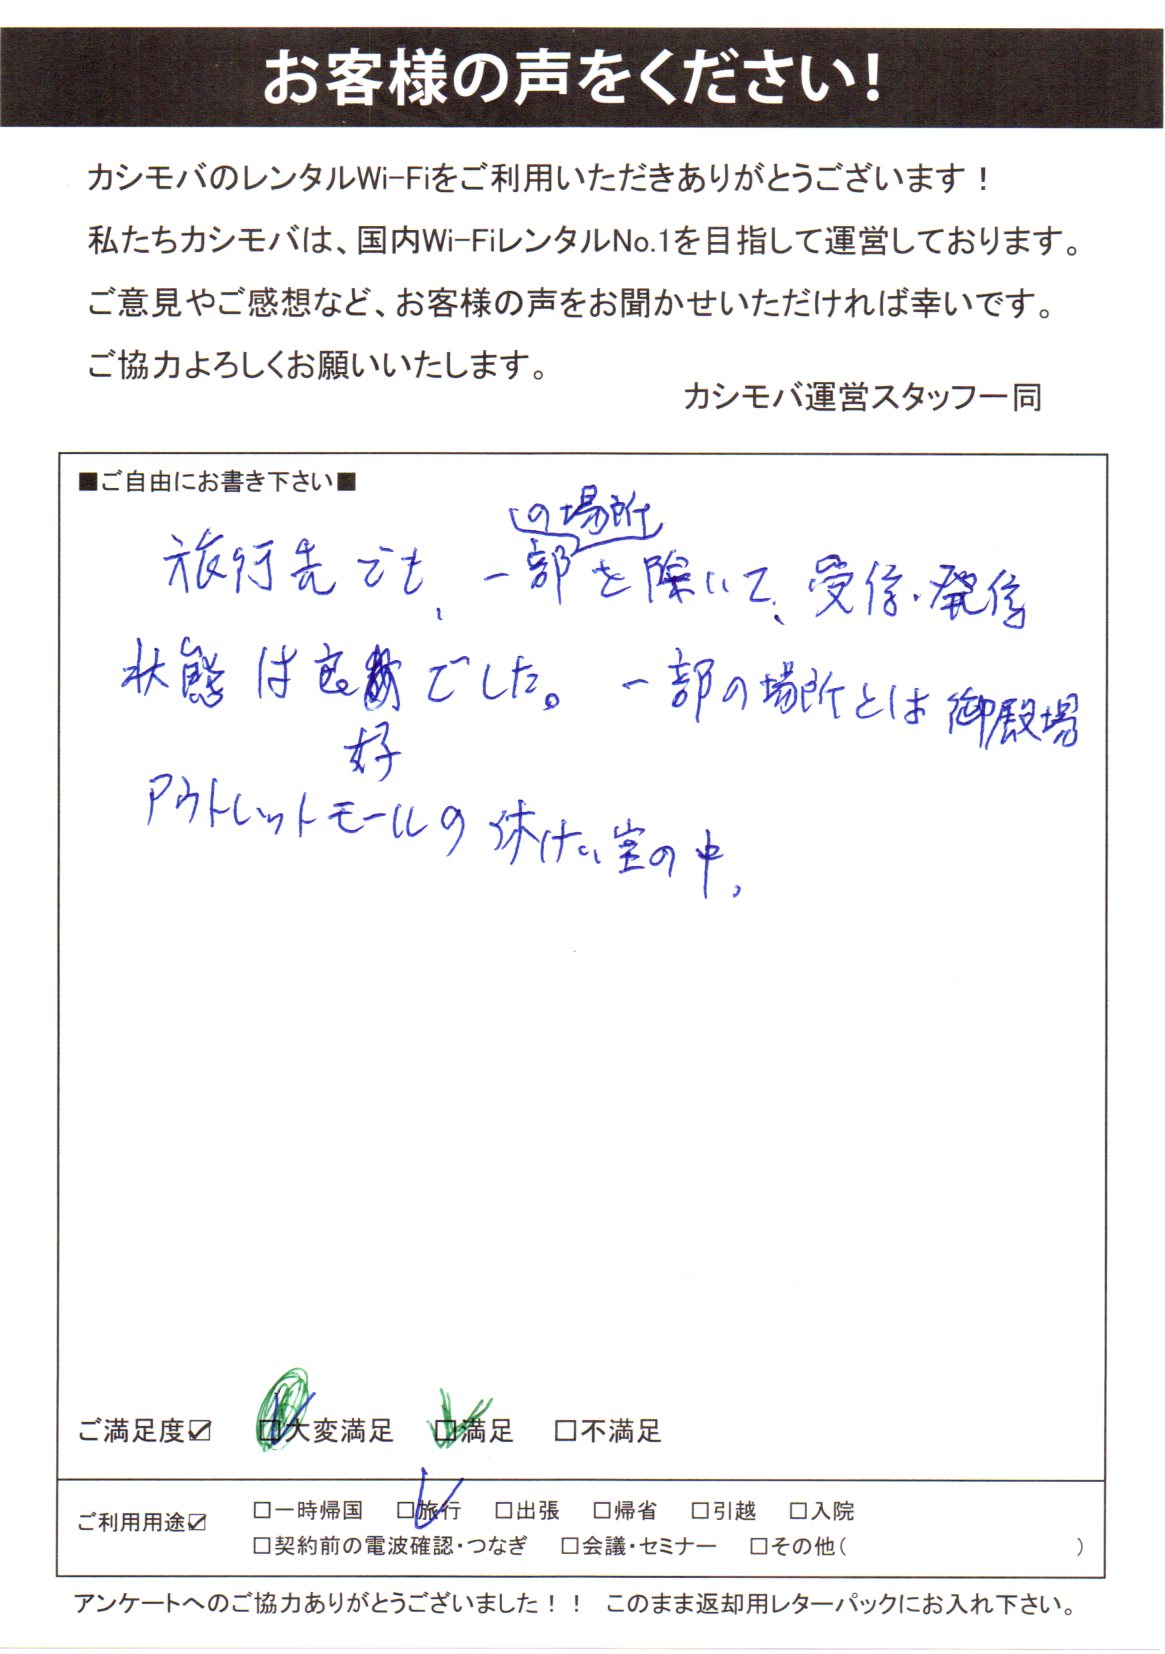 お客様の声をください!
カシモバのレンタルWi-Fiをご利用いただきありがとうございます！
私たちカシモバは、国内Wi-FiレンタルNo.1を目指して運営しております。
ご意見やご感想など、お客様の声をお聞かせいただければ幸いです。
ご協力よろしくお願いいたします。
カシモバ運営スタッフ一同
■ご自由にお書き下さい■
の場所
旅行先でも、一部を除いて、受信・発信
状態は良でした。一部の場所とは御殿場
好
アウトレットモールの休けい室の中。
ご満足度☑ □大変満足 □満足 □不満足
ご利用用途☑ □一時帰国 □旅行 □出張 □帰省 □引越 □入院
□契約前の電波確認・つなぎ □会議・セミナー □その他( )
アンケートへのご協力ありがとうございました！！ このまま返却用レターパックにお入れ下さい。